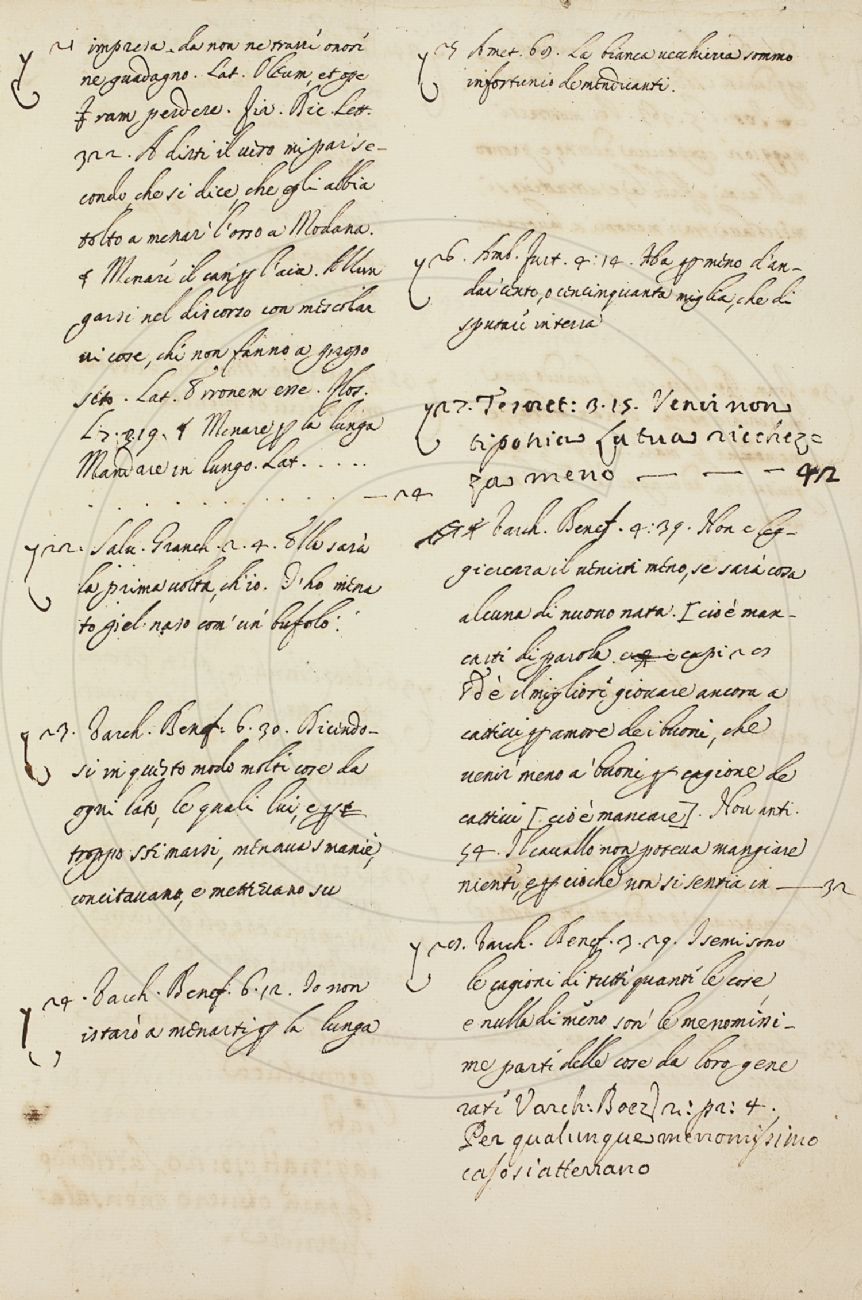 21 impresa da non ne trarre onore
ne guadagno. Lat. Oleum, et ope
ram perdere. Fir. Dic. Lett.
322. A dirti il vero mi par se-
condo, che si dice, che egli abbia
tolto a menar l'orso a Modana.
¶ Menare il can per l'aia. Allun
garsi nel discorso con mescolar
vi cose, che non fanno a propo
sito. Lat. Erronem esse. Flos.
219. ¶ Menare per la lunga
Mandare in lungo. Lat. . . . . .
. . . . . . . . . . . — 24
22. Salv. Granch. 2. 4. Ella sarà
la prima volta, ch'io. T'ho mena
to piel naso com' un' bufolo.
23. Varch. Benef. 6. 30. Dicendo-
si in questo modo molte cose da
ogni lato, le quali lui, e per se
troppo stimarsi, menava smanie,
concitavano, e mettevano su
24. Varch. Benef. 6. 12. Io non
istarò a menarti per la lunga
25 Amet. 69. La bianca vecchiezza sommo
infortunio de mendicanti.
26. Amb. Furt. 4: 14. Ha per meno d'an-
dar cento, o cencinquanta miglia, che di
sputare in terra
27. Tesoret: 3. 15. Venir non
ti poria la tua ricchez=
za meno — — — 42
¶ Varch. Benef. 4: 39. Non è leg-
gierezza il venirti meno, se sarà cosa
alcuna di nuovo nata. [cioè man-
carti di parola
Ed è il migliore giovare ancora a
cattivi per amore de i buoni, che
venir meno a' buoni per cagione de
cattivi [cioè mancare]. Nov. ant.
54. Il cavallo non poteva mangiare
niente, e per ciò che non si sentia in — 32
28. Varch. Benef. 3. 29. I semi sono
le cagioni di tutte quante le cose,
e nulla di meno son' le menomissi-
me parti delle cose da loro gene
rate Varch: Boez) 2: pr: 4.
Per qualunque menomissimo
caso si atterrano